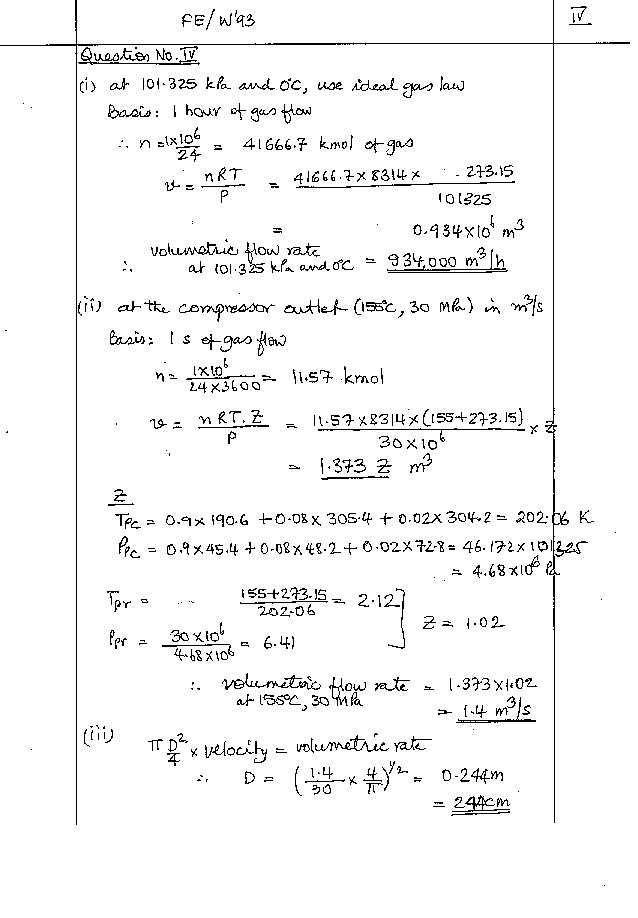 FE/W'93
IV
Question No. IV
(i) at 101.325 kPa and 0°C, use ideal gas law
Basis: 1 hour of gas flow
∴ n = 1×10⁶/24 = 41666.7 kmol of gas
v = nRT/P = 41666.7 × 8314 × 273.15 / 101325
= 0.934×10⁶ m³
∴ volumetric flow rate at 101.325 kPa and 0°C = 934,000 m³/h
(ii) at the compressor outlet (155°C, 30 MPa) in m³/s
Basis: 1 s of gas flow
n = 1×10⁶/24×3600 = 11.57 kmol
v = nRT.Z/P = 11.57×8314×(155+273.15)/30×10⁶ × Z
= 1.373 Z m³
Z
Tpc = 0.9×190.6 + 0.08×305.4 + 0.02×304.2 = 202.06 K
Ppc = 0.9×45.4 + 0.08×48.2 + 0.02×72.8 = 46.172×101325
= 4.68×10⁶ Pa
Tpr = 155+273.15/202.06 = 2.12
Z = 1.02
Ppr = 30×10⁶/4.68×10⁶ = 6.41
∴ volumetric flow rate at 155°C, 30 MPa = 1.373×1.02
= 1.4 m³/s
(iii) π D²/4 × velocity = volumetric rate
∴ D = (1.4/30 × 4/π)^1/2 = 0.244m
= 244cm